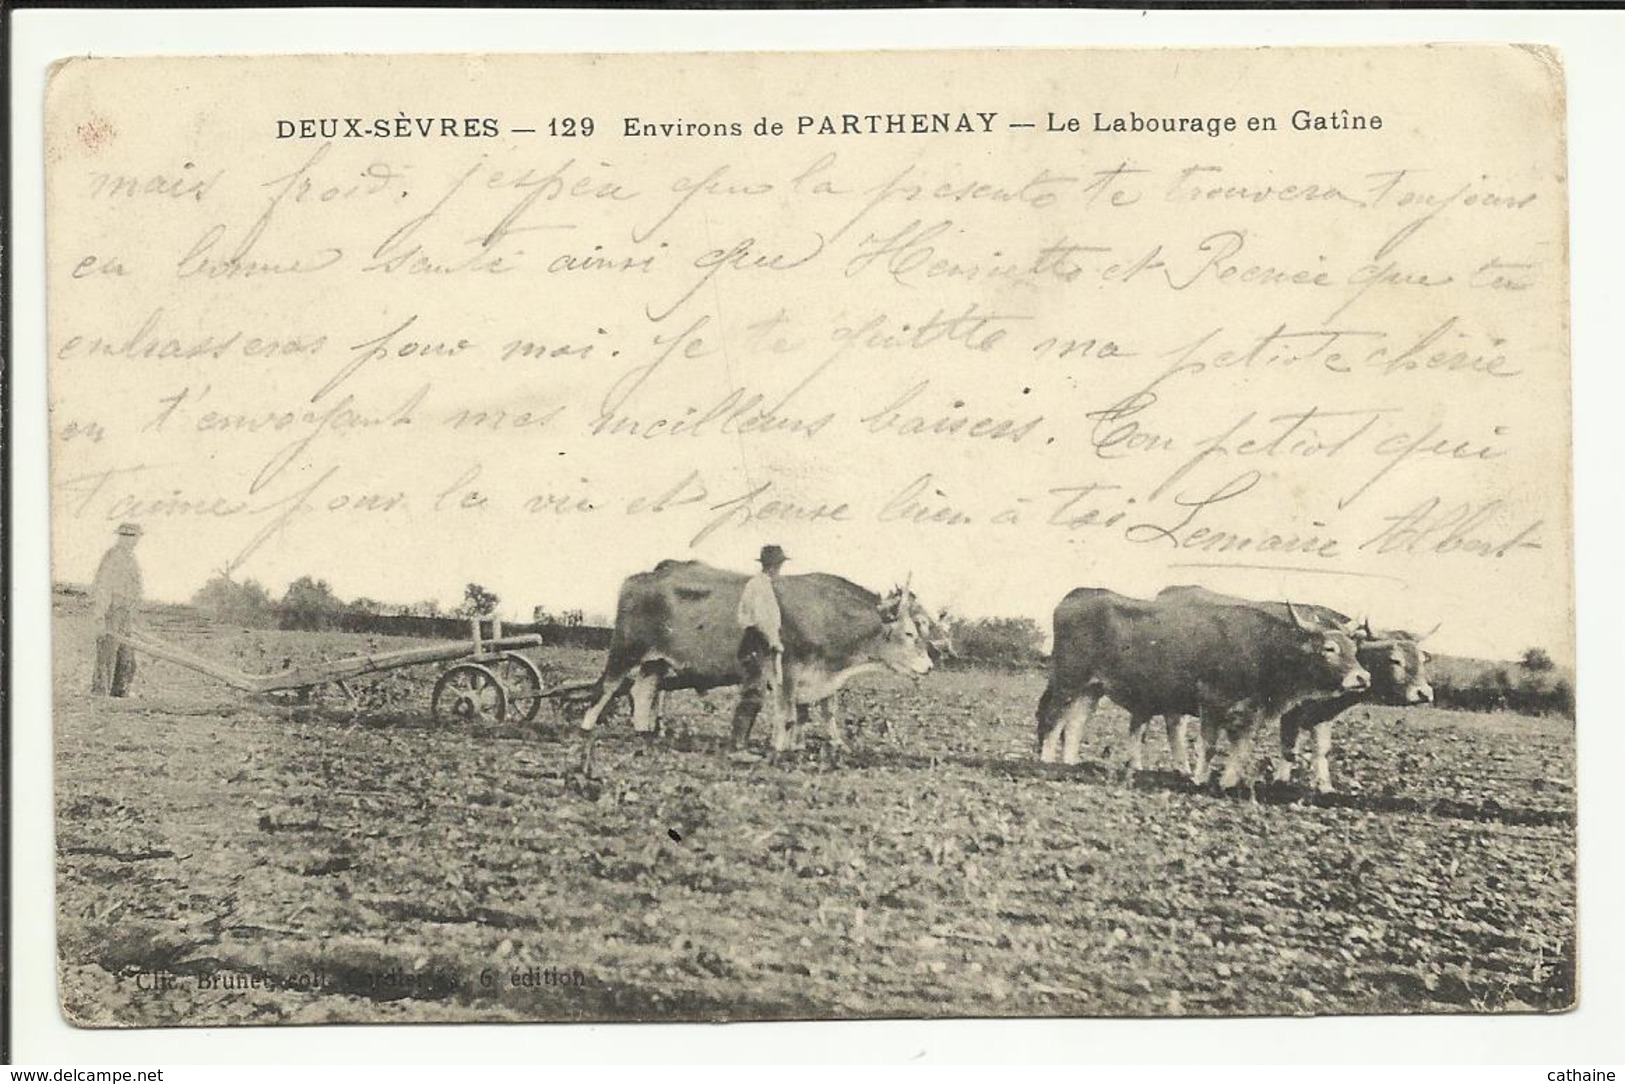 DEUX-SÈVRES — 129 Environs de PARTHENAY — Le Labourage en Gatîne
mais froid. j'espère que la présente te trouvera toujours
en bonne santé ainsi que Henriette et Renée que tu
embrasseras pour moi. Je te quitte ma petiote chérie
en t'envoyant mes meilleurs baisers. Ton petiot qui
t'aime pour la vie et pense bien à toi Lemaire Albert
Clic. Brunet, coll. Cordier 6 édition
www.delcampe.net
cathaine